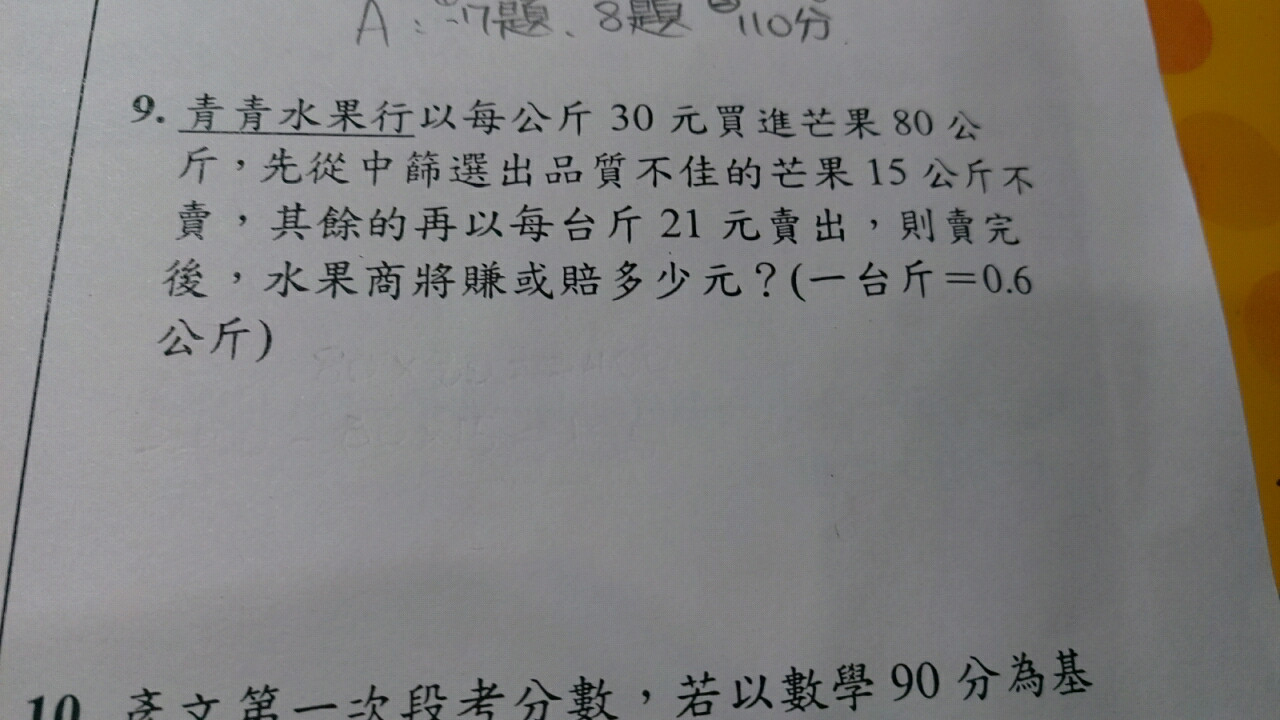 A：-17題、8題 ②110分
9. 青青水果行以每公斤 30 元買進芒果 80 公
斤，先從中篩選出品質不佳的芒果 15 公斤不
賣，其餘的再以每台斤 21 元賣出，則賣完
後，水果商將賺或賠多少元？(一台斤＝0.6
公斤)
10. 彥文第一次段考分數，若以數學 90 分為基